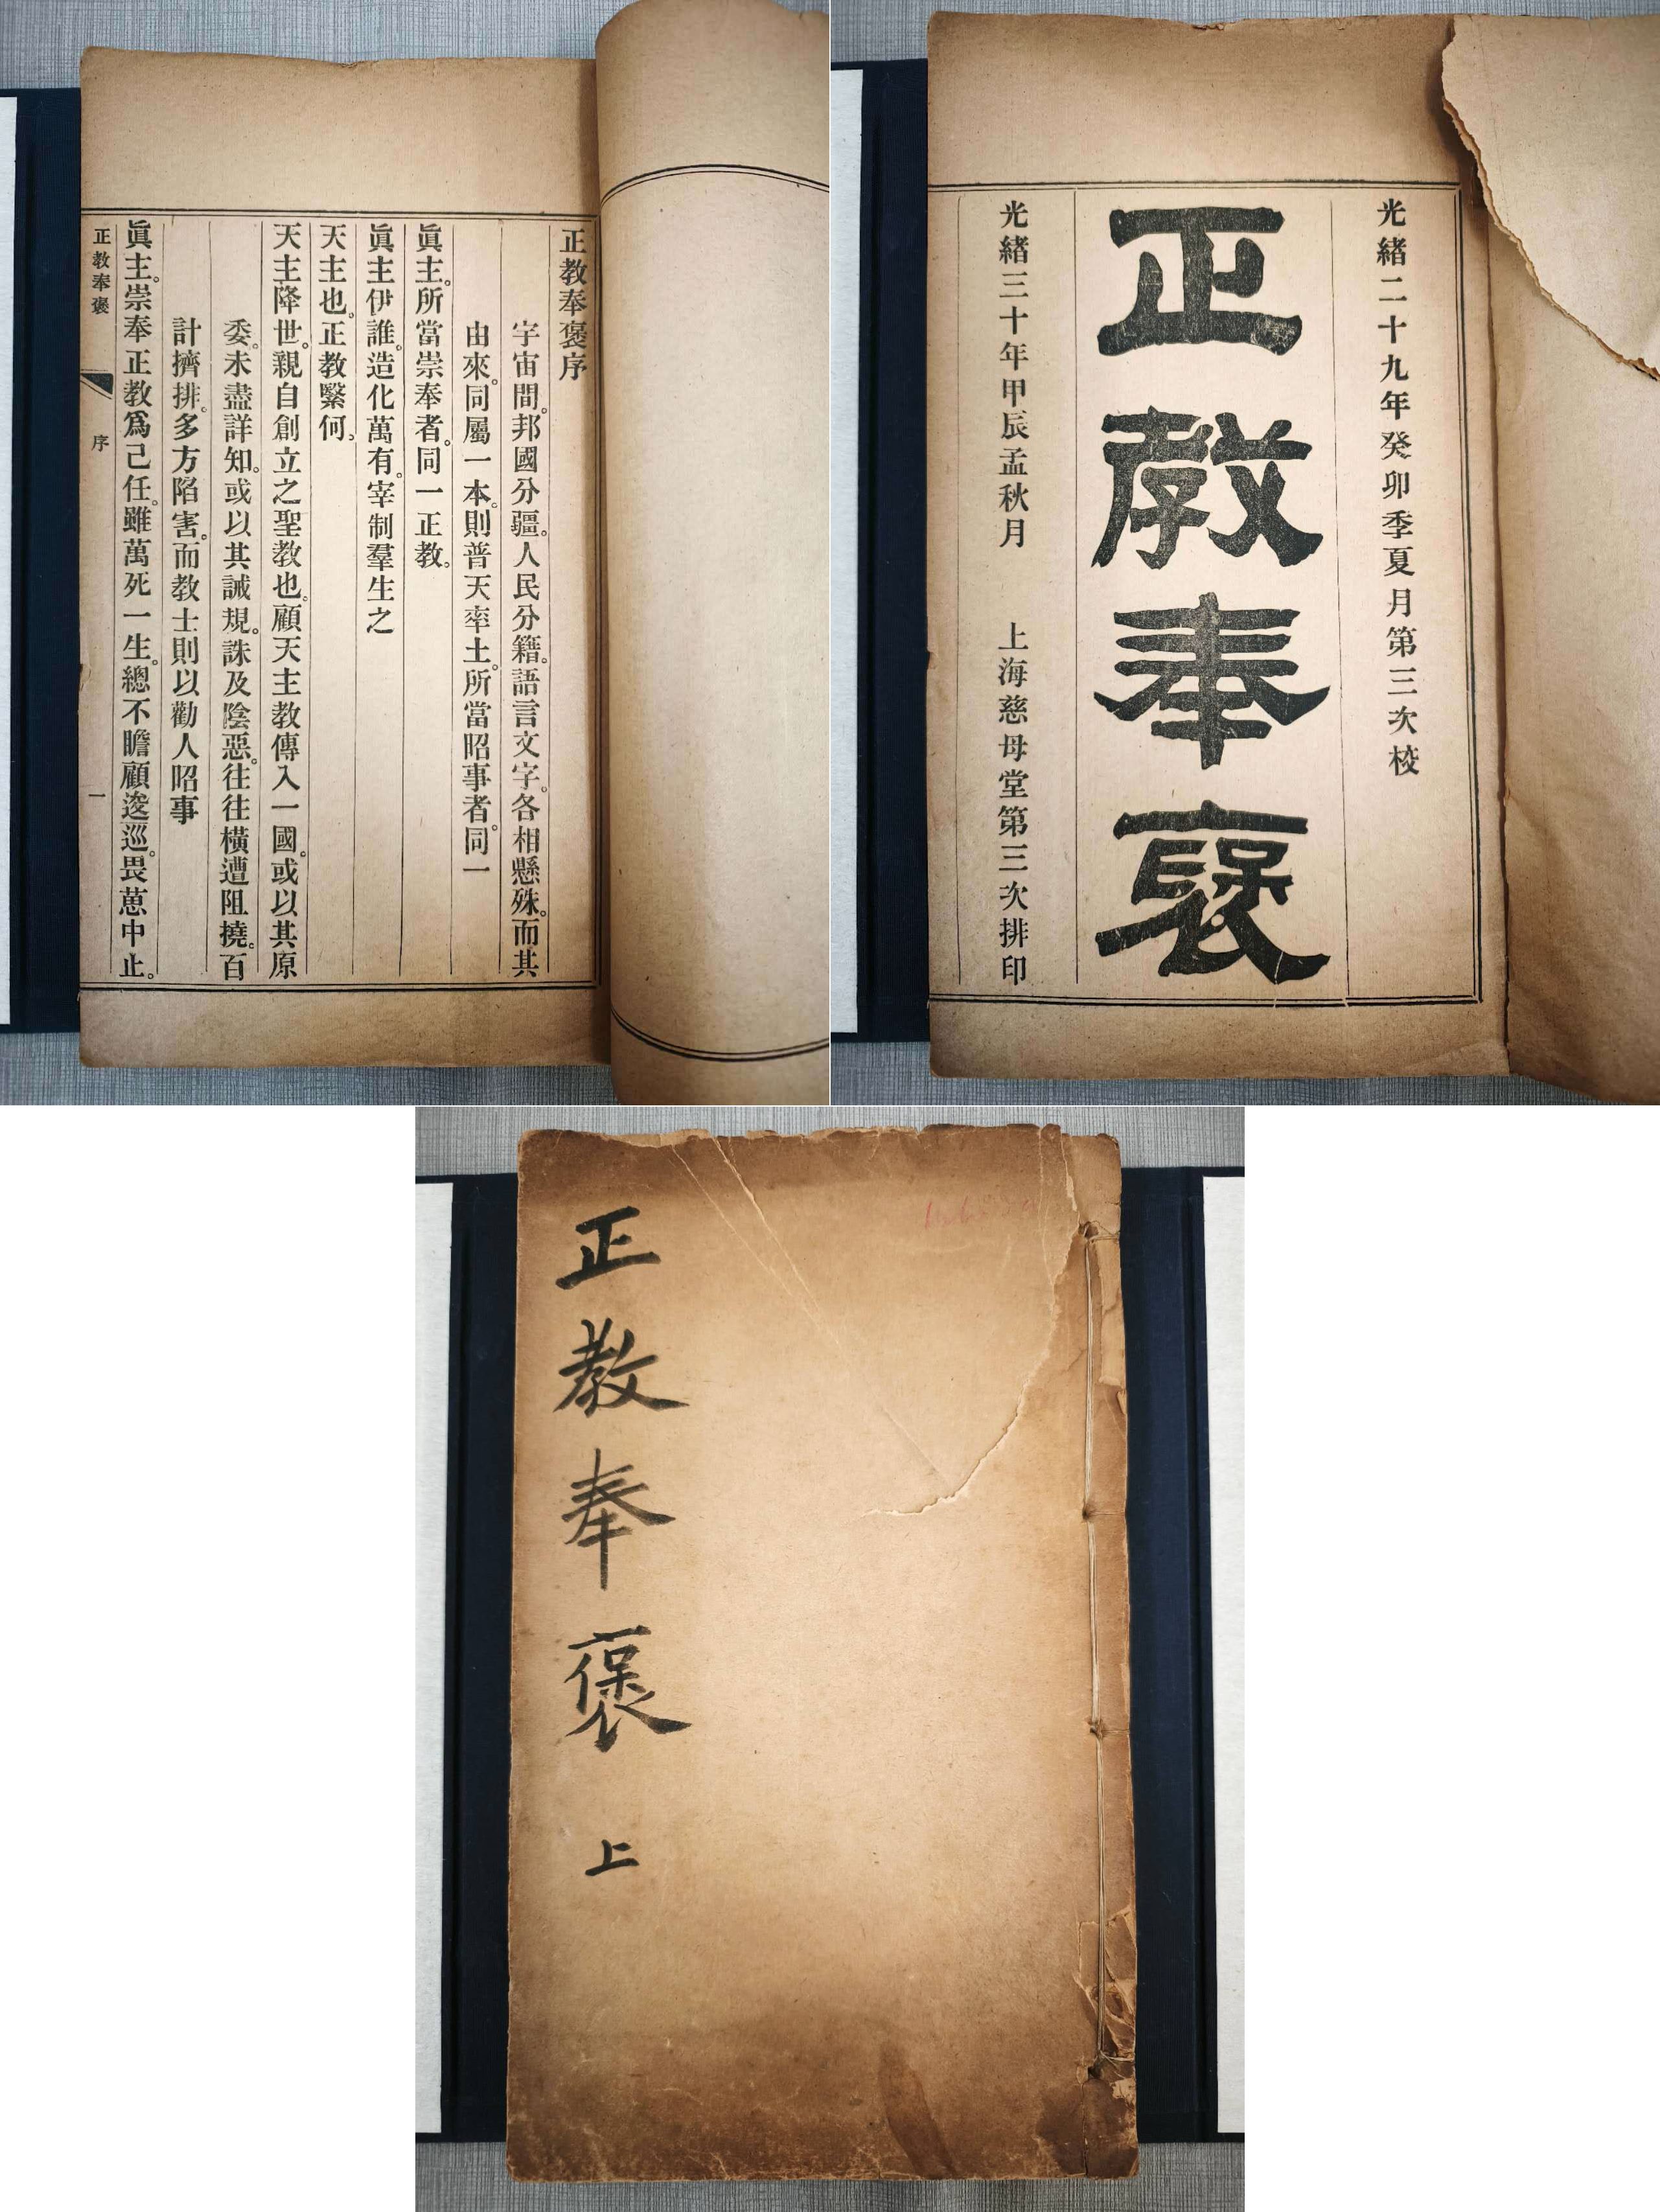 正教奉褒序
宇宙間。邦國分疆。人民分籍。語言文字。各相懸殊。而其
由來。同屬一本。則普天率土。所當昭事者。同一
眞主。所當崇奉者。同一正教。
眞主伊誰。造化萬有。宰制羣生之
天主也。正教緊何。
天主降世。親自創立之聖教也。顧天主教傳入一國。或以其原
委。未盡詳知。或以其誡規。誅及陰惡。往往橫遭阻撓。百
計擠排。多方陷害。而教士則以勸人昭事
眞主。崇奉正教爲己任。雖萬死一生。總不瞻顧逡巡。畏葸中止。
正教奉褒 序 一
光緒二十九年癸卯季夏月第三次校
正教奉褒
光緒三十年甲辰孟秋月 上海慈母堂第三次排印
正教奉褒 上